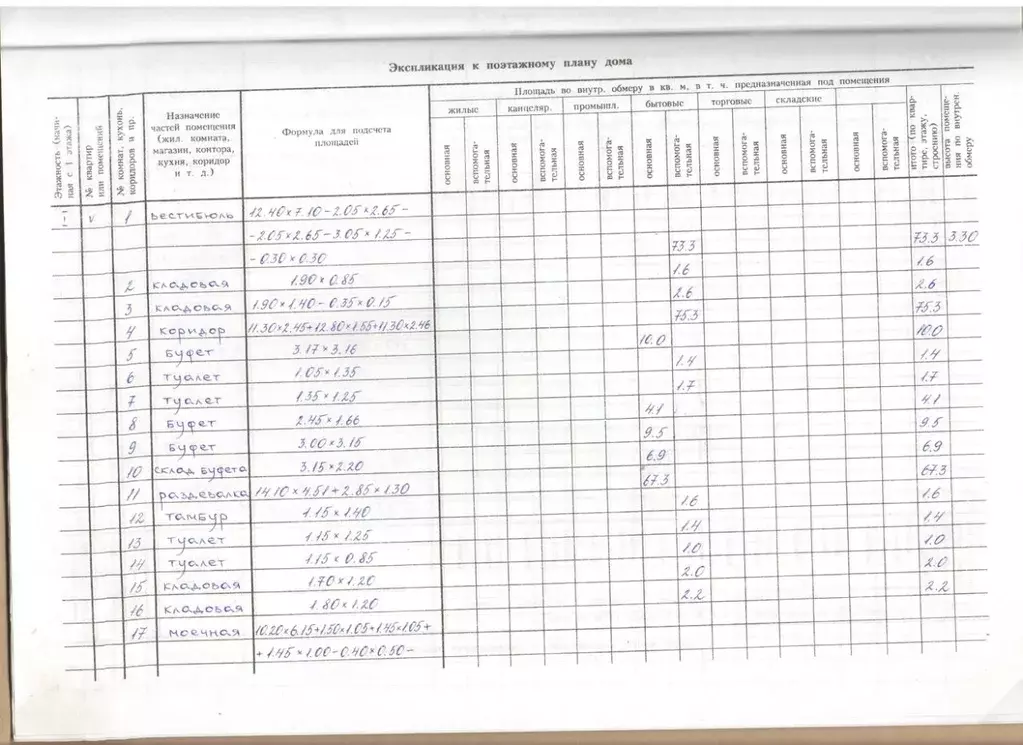 Экспликация к поэтажному плану дома
Этажность (начиная с 1 этажа)
№ квартир или помещений
№ комнат, кухонь, коридоров и пр.
Назначение частей помещения (жил. комната, магазин, контора, кухня, коридор и т. д.)
Формула для подсчета площадей
Площадь во внутр. обмеру в кв. м, в т. ч. предназначенная под помещения
жилые канцеляр. промышл. бытовые торговые складские
основная вспомогательная основная вспомогательная основная вспомогательная основная вспомогательная основная вспомогательная основная вспомогательная основная вспомогательная
итого (по квартире, этажу, строению)
высота помещения по внутрен. обмеру
I-1 V 1 вестибюль 12.40×7.10-2.05×2.65-
-2.05×2.65-3.05×1.25- 73.3 73.3 3.30
-0.30×0.30
2 кладовая 1.90×0.85 1.6 1.6
3 кладовая 1.90×1.40-0.35×0.15 2.6 2.6
4 коридор 11.30×2.45+12.80×1.55+11.30×2.46 75.3 75.3
5 буфет 3.17×3.16 10.0 10.0
6 туалет 1.05×1.35 1.4 1.4
7 туалет 1.35×1.25 1.7 1.7
8 буфет 2.45×1.66 4.1 4.1
9 буфет 3.00×3.15 9.5 9.5
10 склад буфета 3.15×2.20 6.9 6.9
11 раздевалка 14.10×4.51+2.85×1.30 67.3 67.3
12 тамбур 1.15×1.40 1.6 1.6
13 туалет 1.15×1.25 1.4 1.4
14 туалет 1.15×0.85 1.0 1.0
15 кладовая 1.70×1.20 2.0 2.0
16 кладовая 1.80×1.20 2.2 2.2
17 моечная 10.20×6.15+1.50×1.05+1.45×1.05+
+1.45×1.00-0.40×0.50-